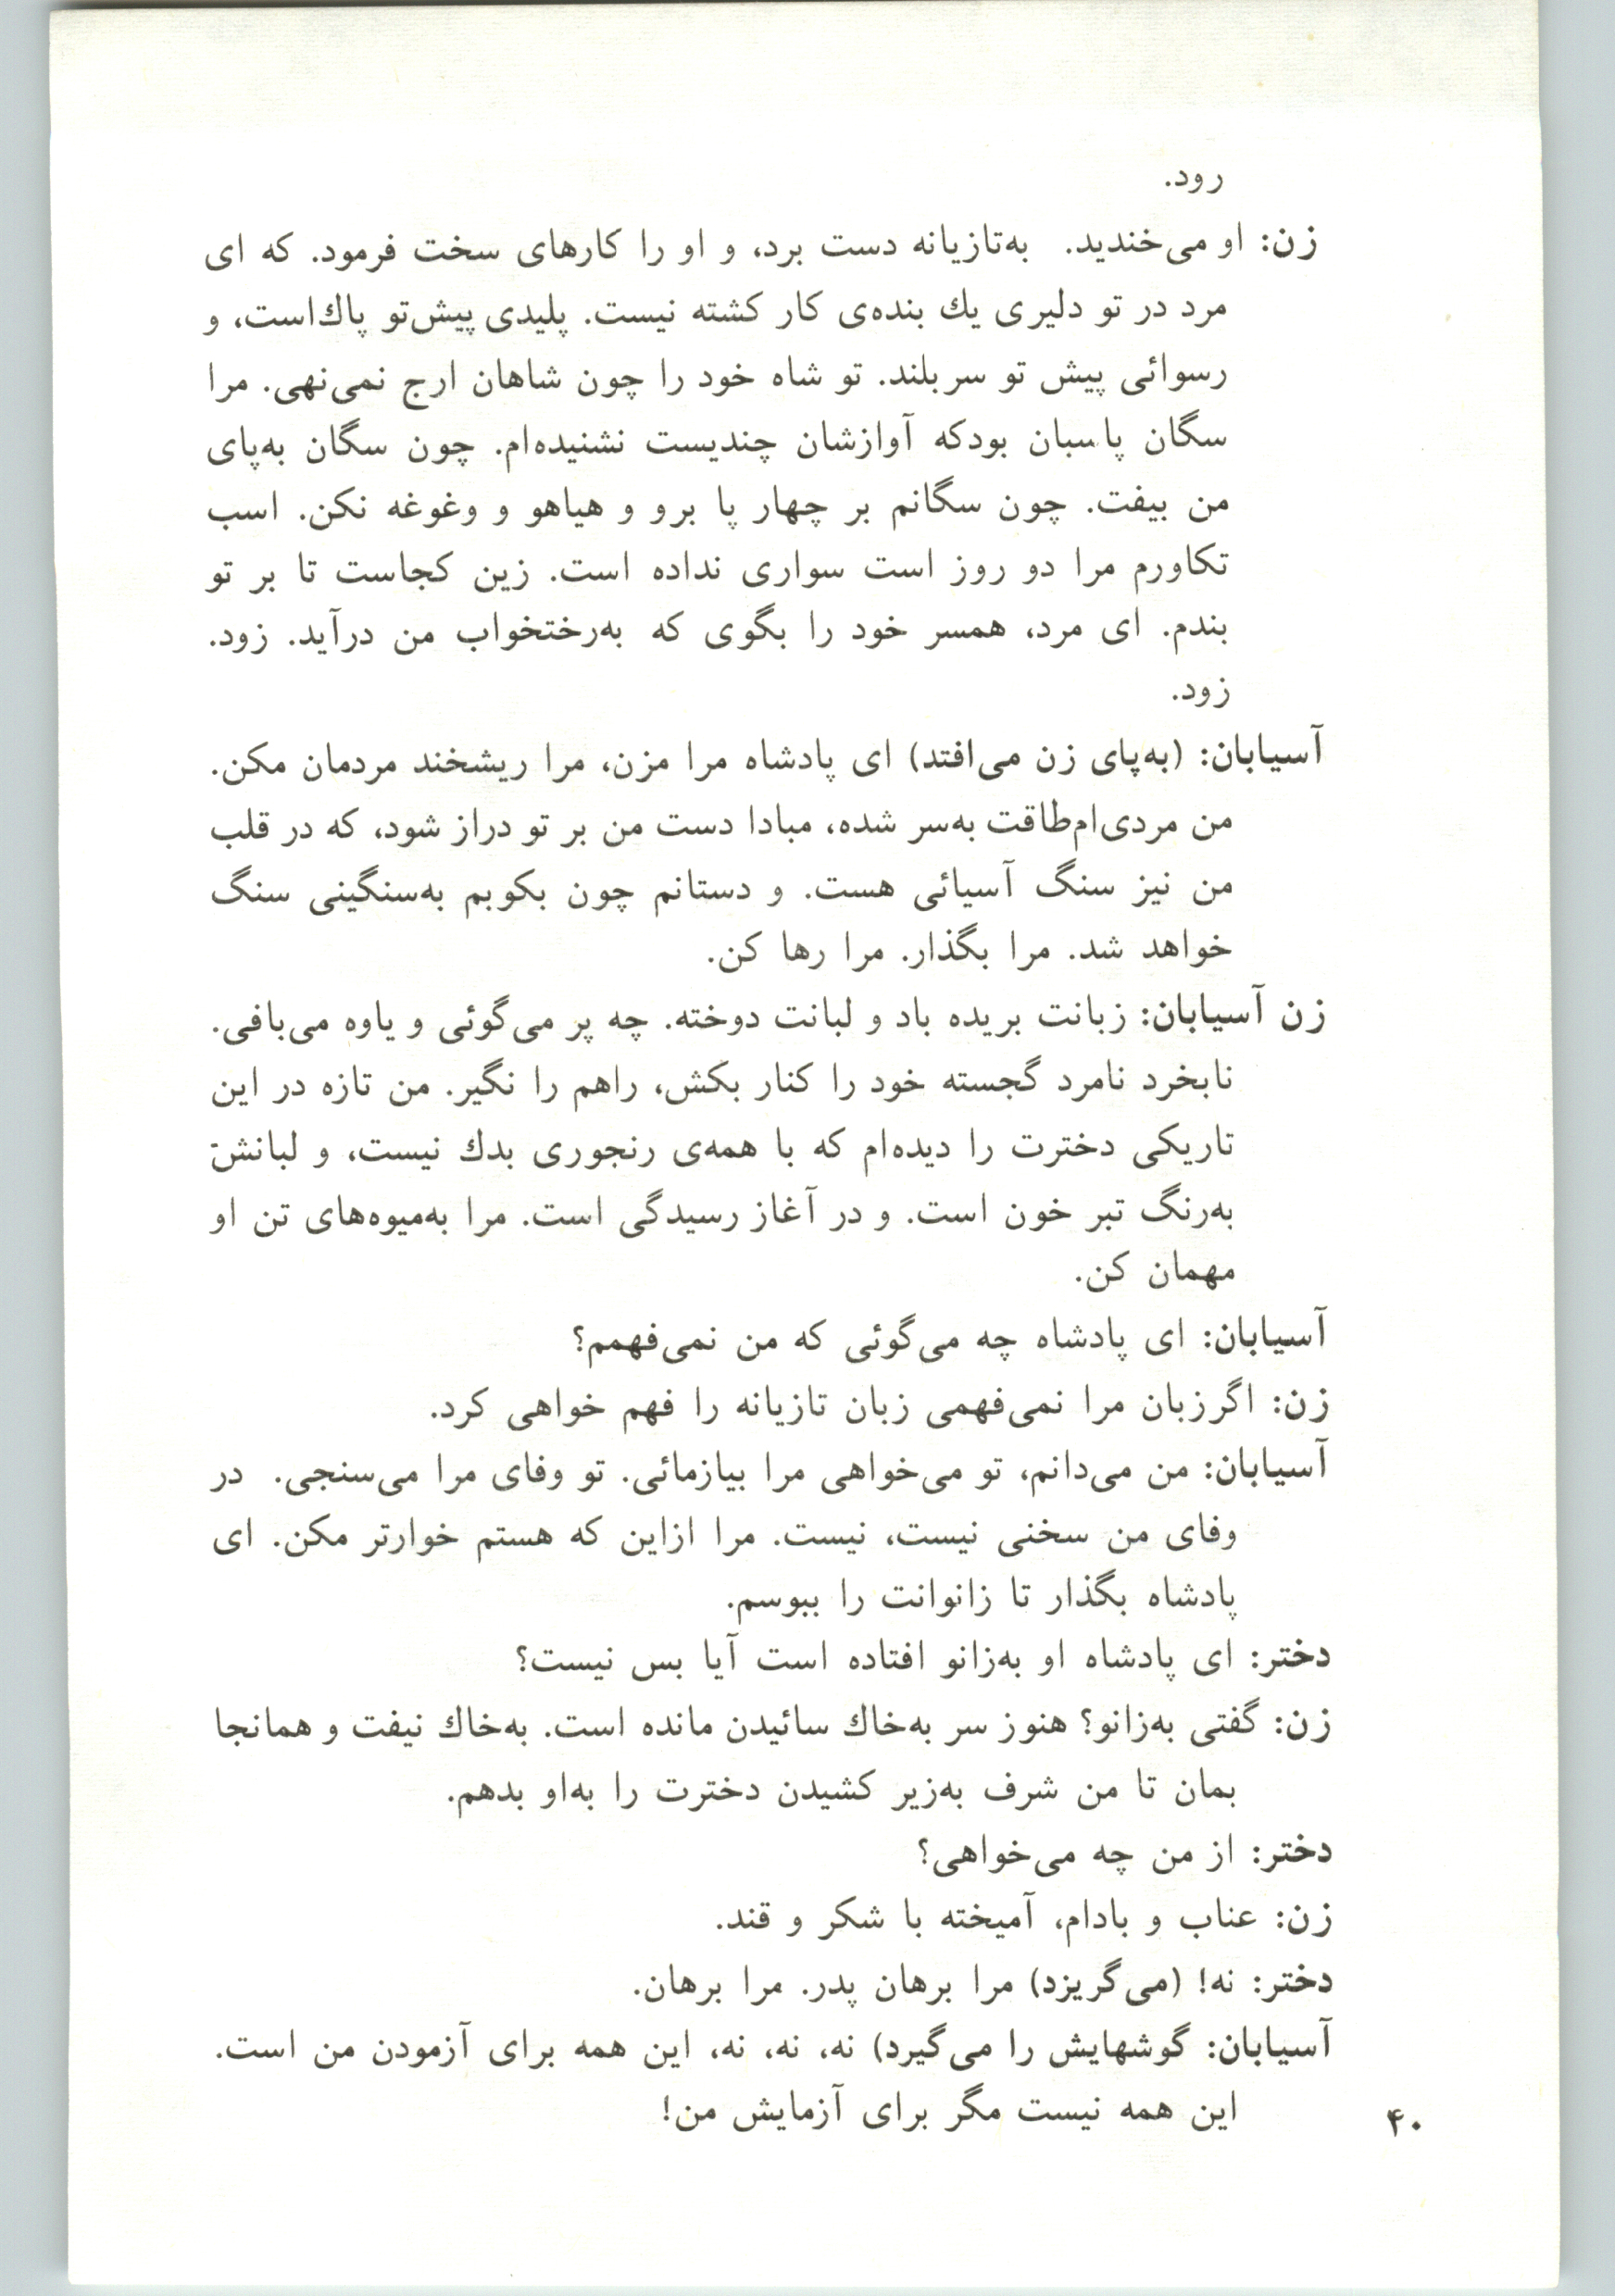 رود.
زن: او می‌خندید. به‌تازیانه دست برد، و او را کارهای سخت فرمود. که ای
مرد در تو دلیری یك بنده‌ی کار کشته نیست. پلیدی پیش‌تو پاك‌است، و
رسوائی پیش تو سربلند. تو شاه خود را چون شاهان ارج نمی‌نهی. مرا
سگان پاسبان بودکه آوازشان چندیست نشنیده‌ام. چون سگان به‌پای
من بیفت. چون سگانم بر چهار پا برو و هیاهو و وغوغه نکن. اسب
تکاورم مرا دو روز است سواری نداده است. زین کجاست تا بر تو
بندم. ای مرد، همسر خود را بگوی که به‌رختخواب من درآید. زود.
زود.
آسیابان: (به‌پای زن می‌افتد) ای پادشاه مرا مزن، مرا ریشخند مردمان مکن.
من مردی‌ام‌طاقت به‌سر شده، مبادا دست من بر تو دراز شود، که در قلب
من نیز سنگ آسیائی هست. و دستانم چون بکوبم به‌سنگینی سنگ
خواهد شد. مرا بگذار. مرا رها کن.
زن آسیابان: زبانت بریده باد و لبانت دوخته. چه پر می‌گوئی و یاوه می‌بافی.
نابخرد نامرد گجسته خود را کنار بکش، راهم را نگیر. من تازه در این
تاریکی دخترت را دیده‌ام که با همه‌ی رنجوری بدك نیست، و لبانش
به‌رنگ تبر خون است. و در آغاز رسیدگی است. مرا به‌میوه‌های تن او
مهمان کن.
آسیابان: ای پادشاه چه می‌گوئی که من نمی‌فهمم؟
زن: اگرزبان مرا نمی‌فهمی زبان تازیانه را فهم خواهی کرد.
آسیابان: من می‌دانم، تو می‌خواهی مرا بیازمائی. تو وفای مرا می‌سنجی. در
وفای من سخنی نیست، نیست. مرا ازاین که هستم خوارتر مکن. ای
پادشاه بگذار تا زانوانت را ببوسم.
دختر: ای پادشاه او به‌زانو افتاده است آیا بس نیست؟
زن: گفتی به‌زانو؟ هنوز سر به‌خاك سائیدن مانده است. به‌خاك نیفت و همانجا
بمان تا من شرف به‌زیر کشیدن دخترت را به‌او بدهم.
دختر: از من چه می‌خواهی؟
زن: عناب و بادام، آمیخته با شکر و قند.
دختر: نه! (می‌گریزد) مرا برهان پدر. مرا برهان.
آسیابان: گوشهایش را می‌گیرد) نه، نه، نه، این همه برای آزمودن من است.
این همه نیست مگر برای آزمایش من!
۴۰